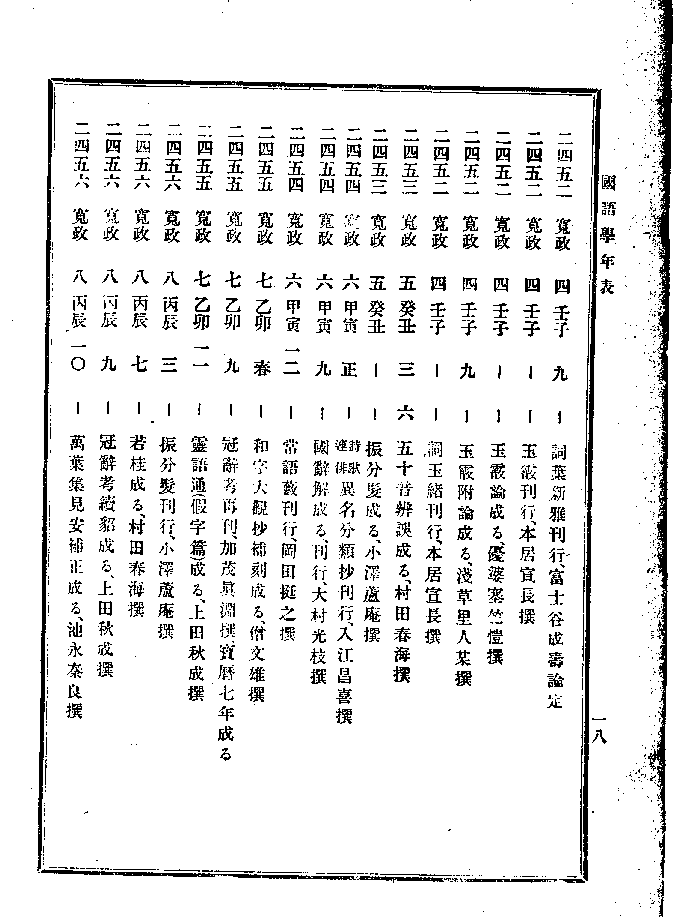 國語學年表
一八
二四五二 寬政 四 壬子 九 ー 詞葉新雅刊行、富士谷成壽論定
二四五二 寬政 四 壬子 ー ー 玉霰刊行、本居宣長撰
二四五二 寬政 四 壬子 ー ー 玉霰論成る、優婆塞竺愷撰
二四五二 寬政 四 壬子 九 ー 玉霰附論成る、淺草里人某撰
二四五二 寬政 四 壬子 ー ー 詞玉緒刊行、本居宣長撰
二四五三 寬政 五 癸丑 三 六 五十音辨誤成る、村田春海撰
二四五三 寬政 五 癸丑 ー ー 振分髮成る、小澤蘆庵撰
二四五四 寬政 六 甲寅 正 ー 詩歌連俳異名分類抄刊行、入江昌喜撰
二四五四 寬政 六 甲寅 九 ー 國辭解成る、刊行、大村光枝撰
二四五四 寬政 六 甲寅 一二 ー 常語藪刊行、岡田挺之撰
二四五五 寬政 七 乙卯 春 ー 和字大觀抄補刻成る、僧文雄撰
二四五五 寬政 七 乙卯 九 ー 冠辭考再刊、加茂眞淵撰寶曆七年成る
二四五五 寬政 七 乙卯 一一 ー 靈語通(假字篇)成る、上田秋成撰
二四五六 寬政 八 丙辰 三 ー 振分髮刊行、小澤蘆庵撰
二四五六 寬政 八 丙辰 七 ー 若桂成る、村田春海撰
二四五六 寬政 八 丙辰 九 ー 冠辭考續貂成る、上田秋成撰
二四五六 寬政 八 丙辰 一〇 ー 萬葉集見安補正成る、池永秦良撰